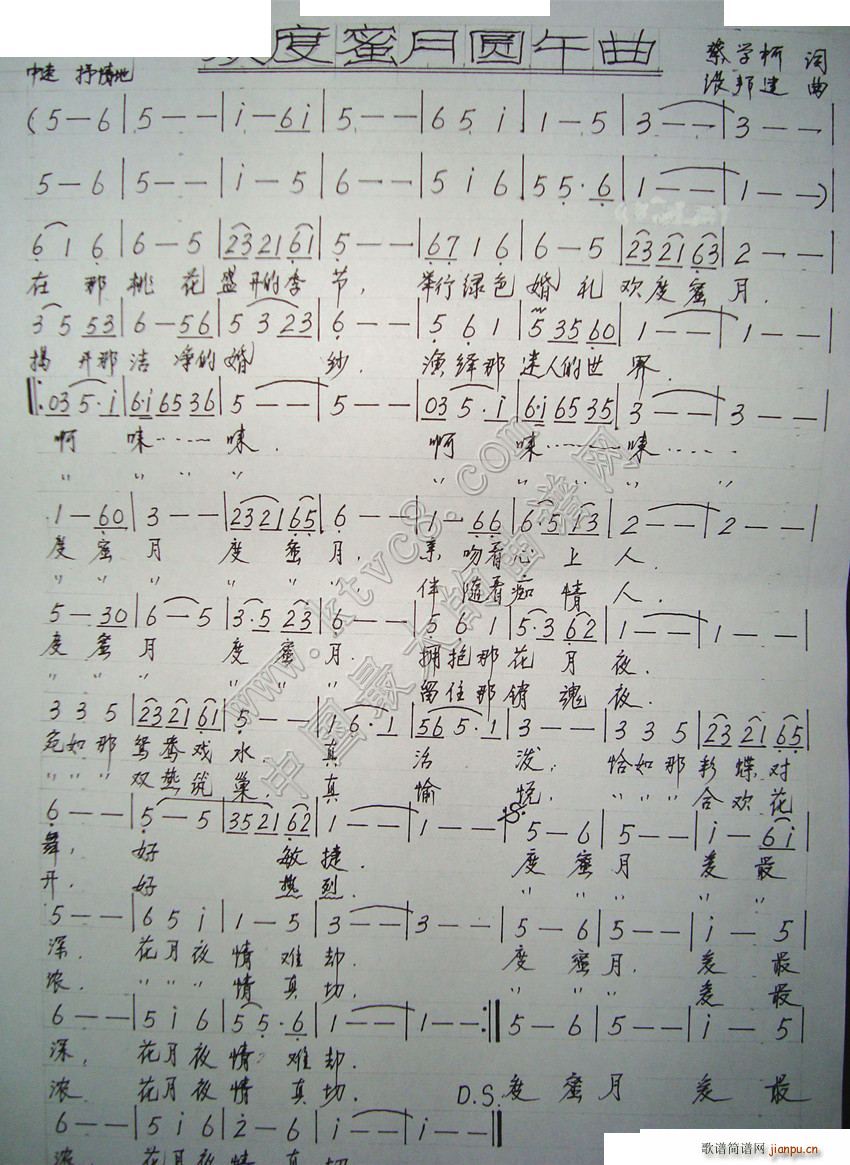 欢度蜜月圆午曲
中速 抒情地
蔡学柯 词
邦建 曲
(5—6|5——|i—6i|5——|6 5 i|1—5|3——|3——|
5—6|5——|i—5|6——|5 i 6|55·6|1——|1——)
6 1 6|6—5|232161|5——|67 1 6|6—5|232163|2——|
在那桃花盛开的季节, 举行绿色婚礼欢度蜜月.
3 5 53|6—56|5 3 23|6——|5 6 1|5 35 60|1——|1——|
揭开那洁净的婚纱. 演绎那迷人的世界.
|:03 5·i|6·i 65 36|5——|5——|03 5·i|6·i 65 35|3——|3——|
啊 咪……咪. 啊 咪……咪……
" " " " " " " "
1—60|3——|232165|6——|1—66|6·5 13|2——|2——|
度蜜月 度蜜月. 亲吻着心上人.
" " " " " " 伴随着痴情人.
5—30|6—5|3·5 23|6——|5 6 1|5·3 62|1——|1——|
度蜜月 度蜜月. 拥抱那花月夜.
" " " " " " 留住那销魂夜.
3 3 5|232161|5——|1 6·1|56 5·1|3——|3 3 5|232165|
宛如那鸳鸯戏水. 真活泼; 恰如那彩蝶对
" " " 双燕筑巢. 真愉悦; " " " 合欢花
6——|5—5|352162|1——|1——|5—6|5——|i—6i|
舞, 好敏捷. 度蜜月 爱最
开. 好热烈. " " " " "
5——|6 5 i|1—5|3——|3——|5—6|5——|i—5|
深. 花月夜情难却. 度蜜月, 爱最
浓. " " " 情真切. " " " 爱最
6——|5 i 6|55·6|1——|1——:|5—6|5——|i—5|
深, 花月夜情难却.
浓. 花月夜情真切. D.S. 度蜜月 爱最
6——|5 i 6|2—6|i——|i——‖
浓 花月夜情真切
www.ktvc8.com
中国最大的曲谱网
歌谱简谱网
jianpu.cn